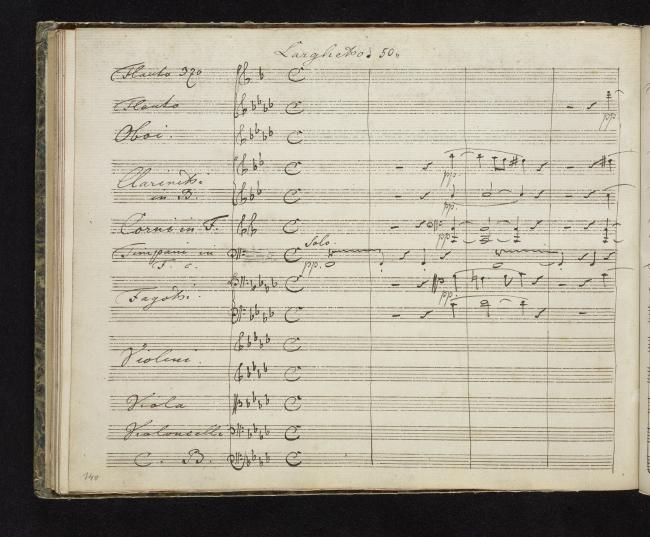 Larghetto ♩ 50.
Flauto 3zo
Flauto
Oboi.
Clarinetti
in B.
Corni in F.
Timpani in
F. c.
Solo.
pp.
Fagotti.
Violini.
Viola
Violoncelli
C. B.
pp.
pp.
pp.
pp.
pp.
140